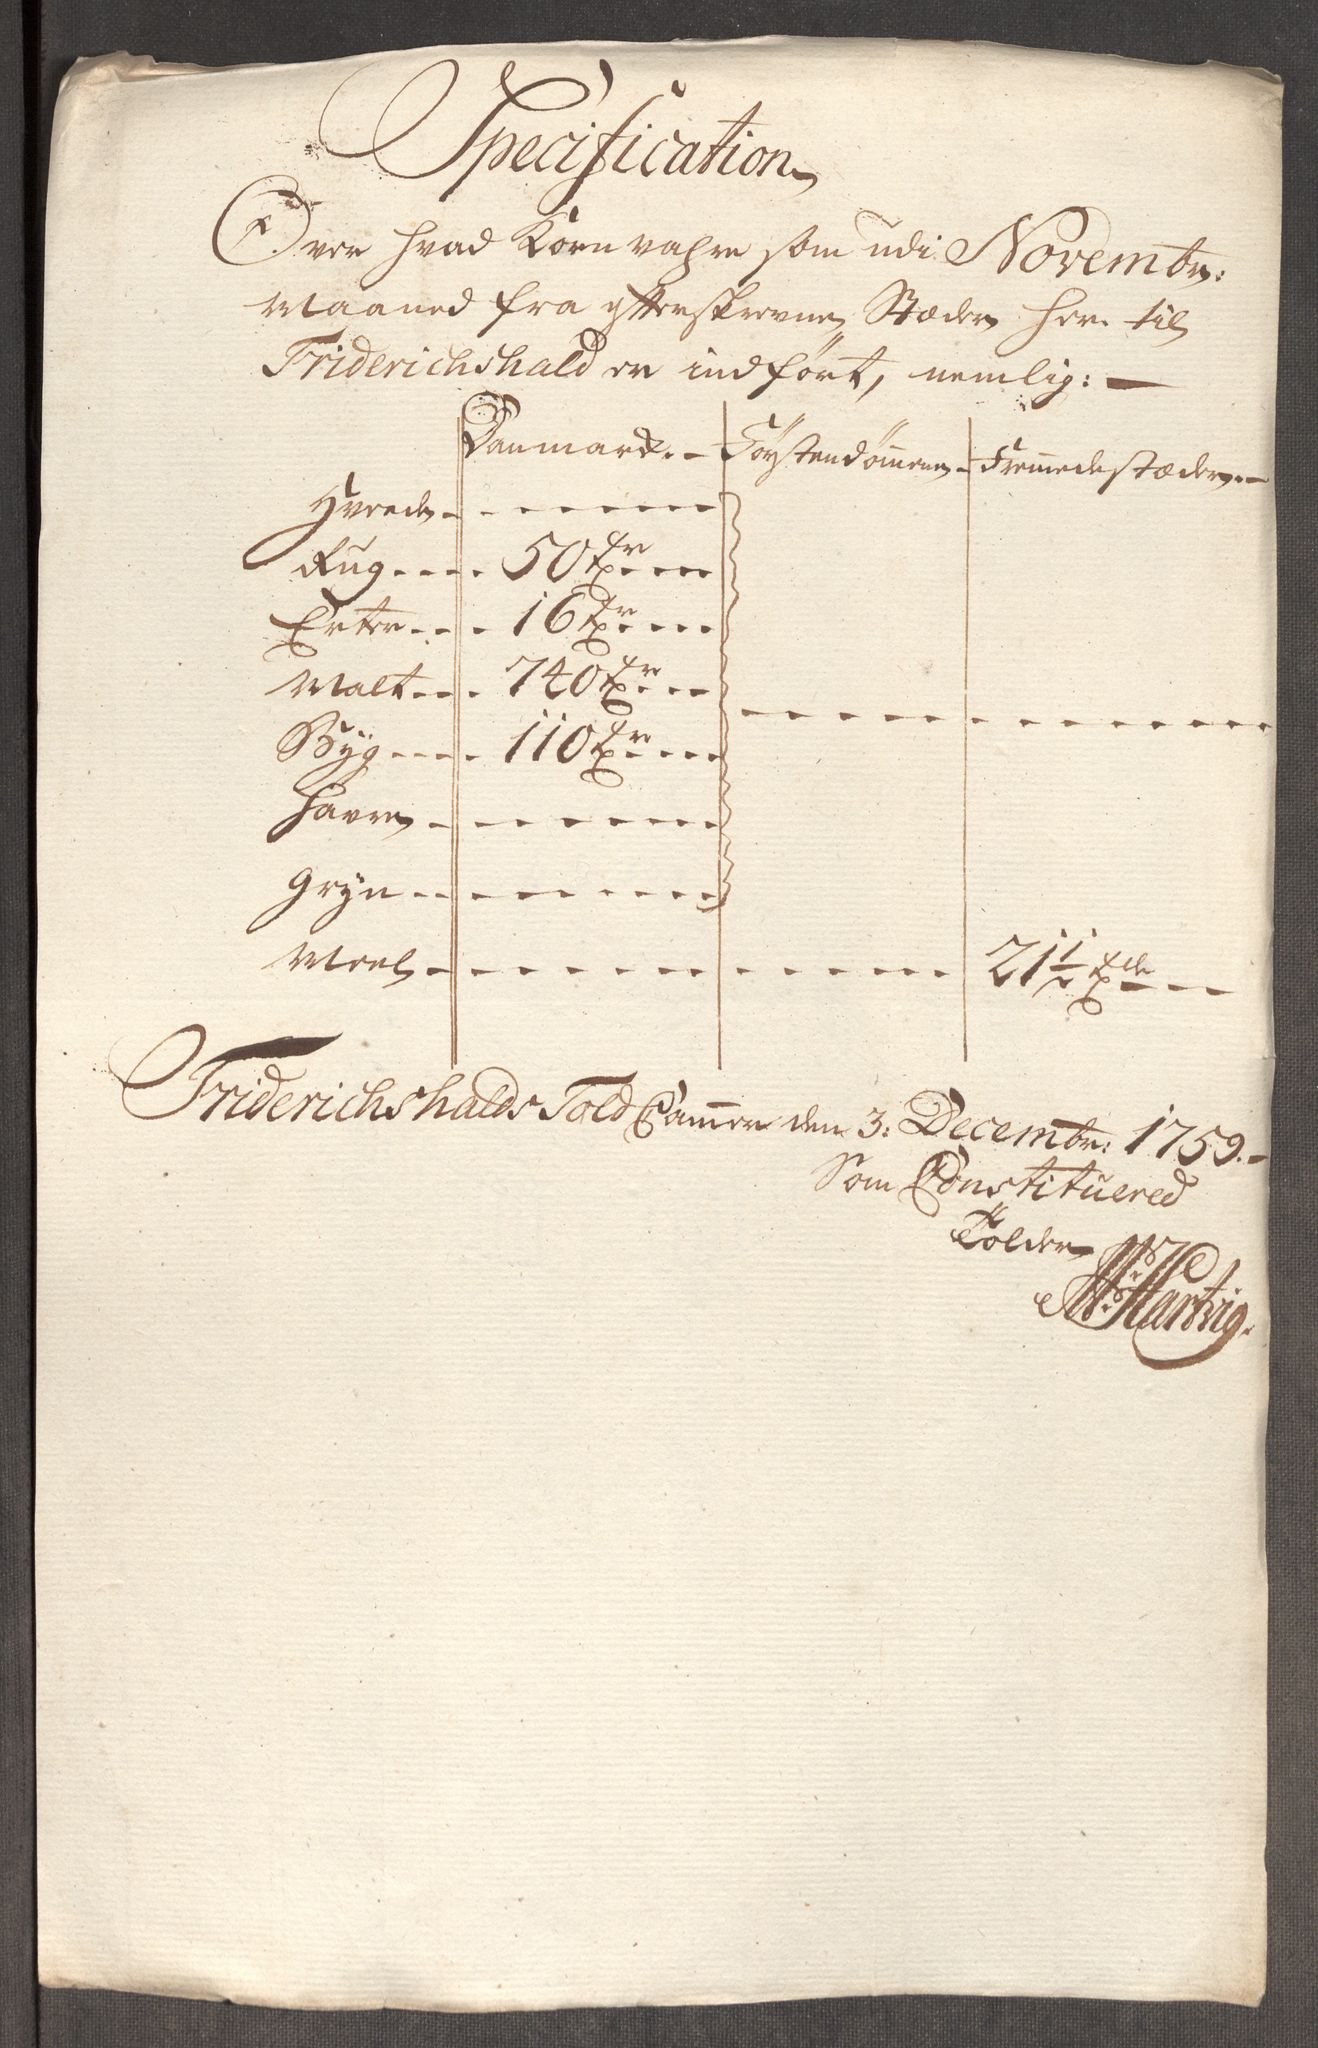 Specification
Over hvad Kornvahre som udi Novembr:
Maaned fra efterskrevne Stæder her til
Friderichshald er indført, nemlig: —
Danmark. – Førstendømmene – Fremmede stæder. –
Hvede - - - - - - -
Rug - - - - 50 Tr - - -
Erter - - - 16 Tr - - -
Malt - - - 740 Tr - -
Byg - - - - 110 Tr - - -
Havre - - - - - - -
Gryn - - - - - - -
Meel - - - - - - - - - - 21 1/2 - - -
Friderichshalds Told Cammer den 3: Decembr: 1759. –
Som Constituered
Tolder
Hartvig.